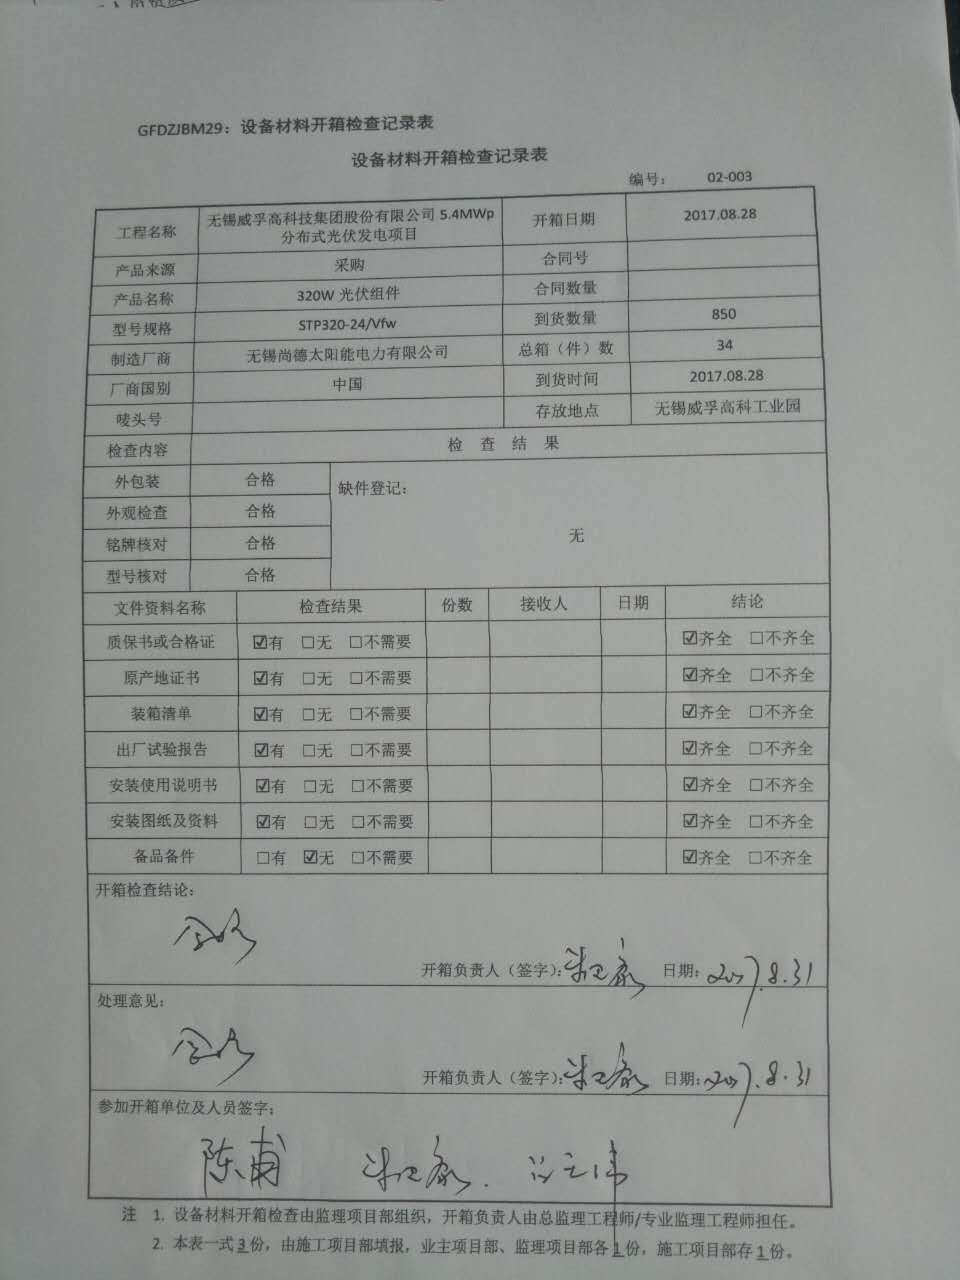 GFDZJBM29：设备材料开箱检查记录表
设备材料开箱检查记录表
编号： 02-003
工程名称 无锡威孚高科技集团股份有限公司 5.4MWp 分布式光伏发电项目 开箱日期 2017.08.28
产品来源 采购 合同号
产品名称 320W 光伏组件 合同数量
型号规格 STP320-24/Vfw 到货数量 850
制造厂商 无锡尚德太阳能电力有限公司 总箱（件）数 34
厂商国别 中国 到货时间 2017.08.28
唛头号 存放地点 无锡威孚高科工业园
检查内容 检 查 结 果
外包装 合格 缺件登记：
外观检查 合格
无
铭牌核对 合格
型号核对 合格
文件资料名称 检查结果 份数 接收人 日期 结论
质保书或合格证 ☑有 ☐无 ☐不需要 ☑齐全 ☐不齐全
原产地证书 ☑有 ☐无 ☐不需要 ☑齐全 ☐不齐全
装箱清单 ☑有 ☐无 ☐不需要 ☑齐全 ☐不齐全
出厂试验报告 ☑有 ☐无 ☐不需要 ☑齐全 ☐不齐全
安装使用说明书 ☑有 ☐无 ☐不需要 ☑齐全 ☐不齐全
安装图纸及资料 ☑有 ☐无 ☐不需要 ☑齐全 ☐不齐全
备品备件 ☐有 ☑无 ☐不需要 ☑齐全 ☐不齐全
开箱检查结论：
合格
开箱负责人（签字）： 日期：2017.8.31
处理意见：
合格
开箱负责人（签字）： 日期：2017.8.31
参加开箱单位及人员签字：
陈甫
注 1. 设备材料开箱检查由监理项目部组织，开箱负责人由总监理工程师/专业监理工程师担任。
2. 本表一式 3 份，由施工项目部填报，业主项目部、监理项目部各 1 份，施工项目部存 1 份。